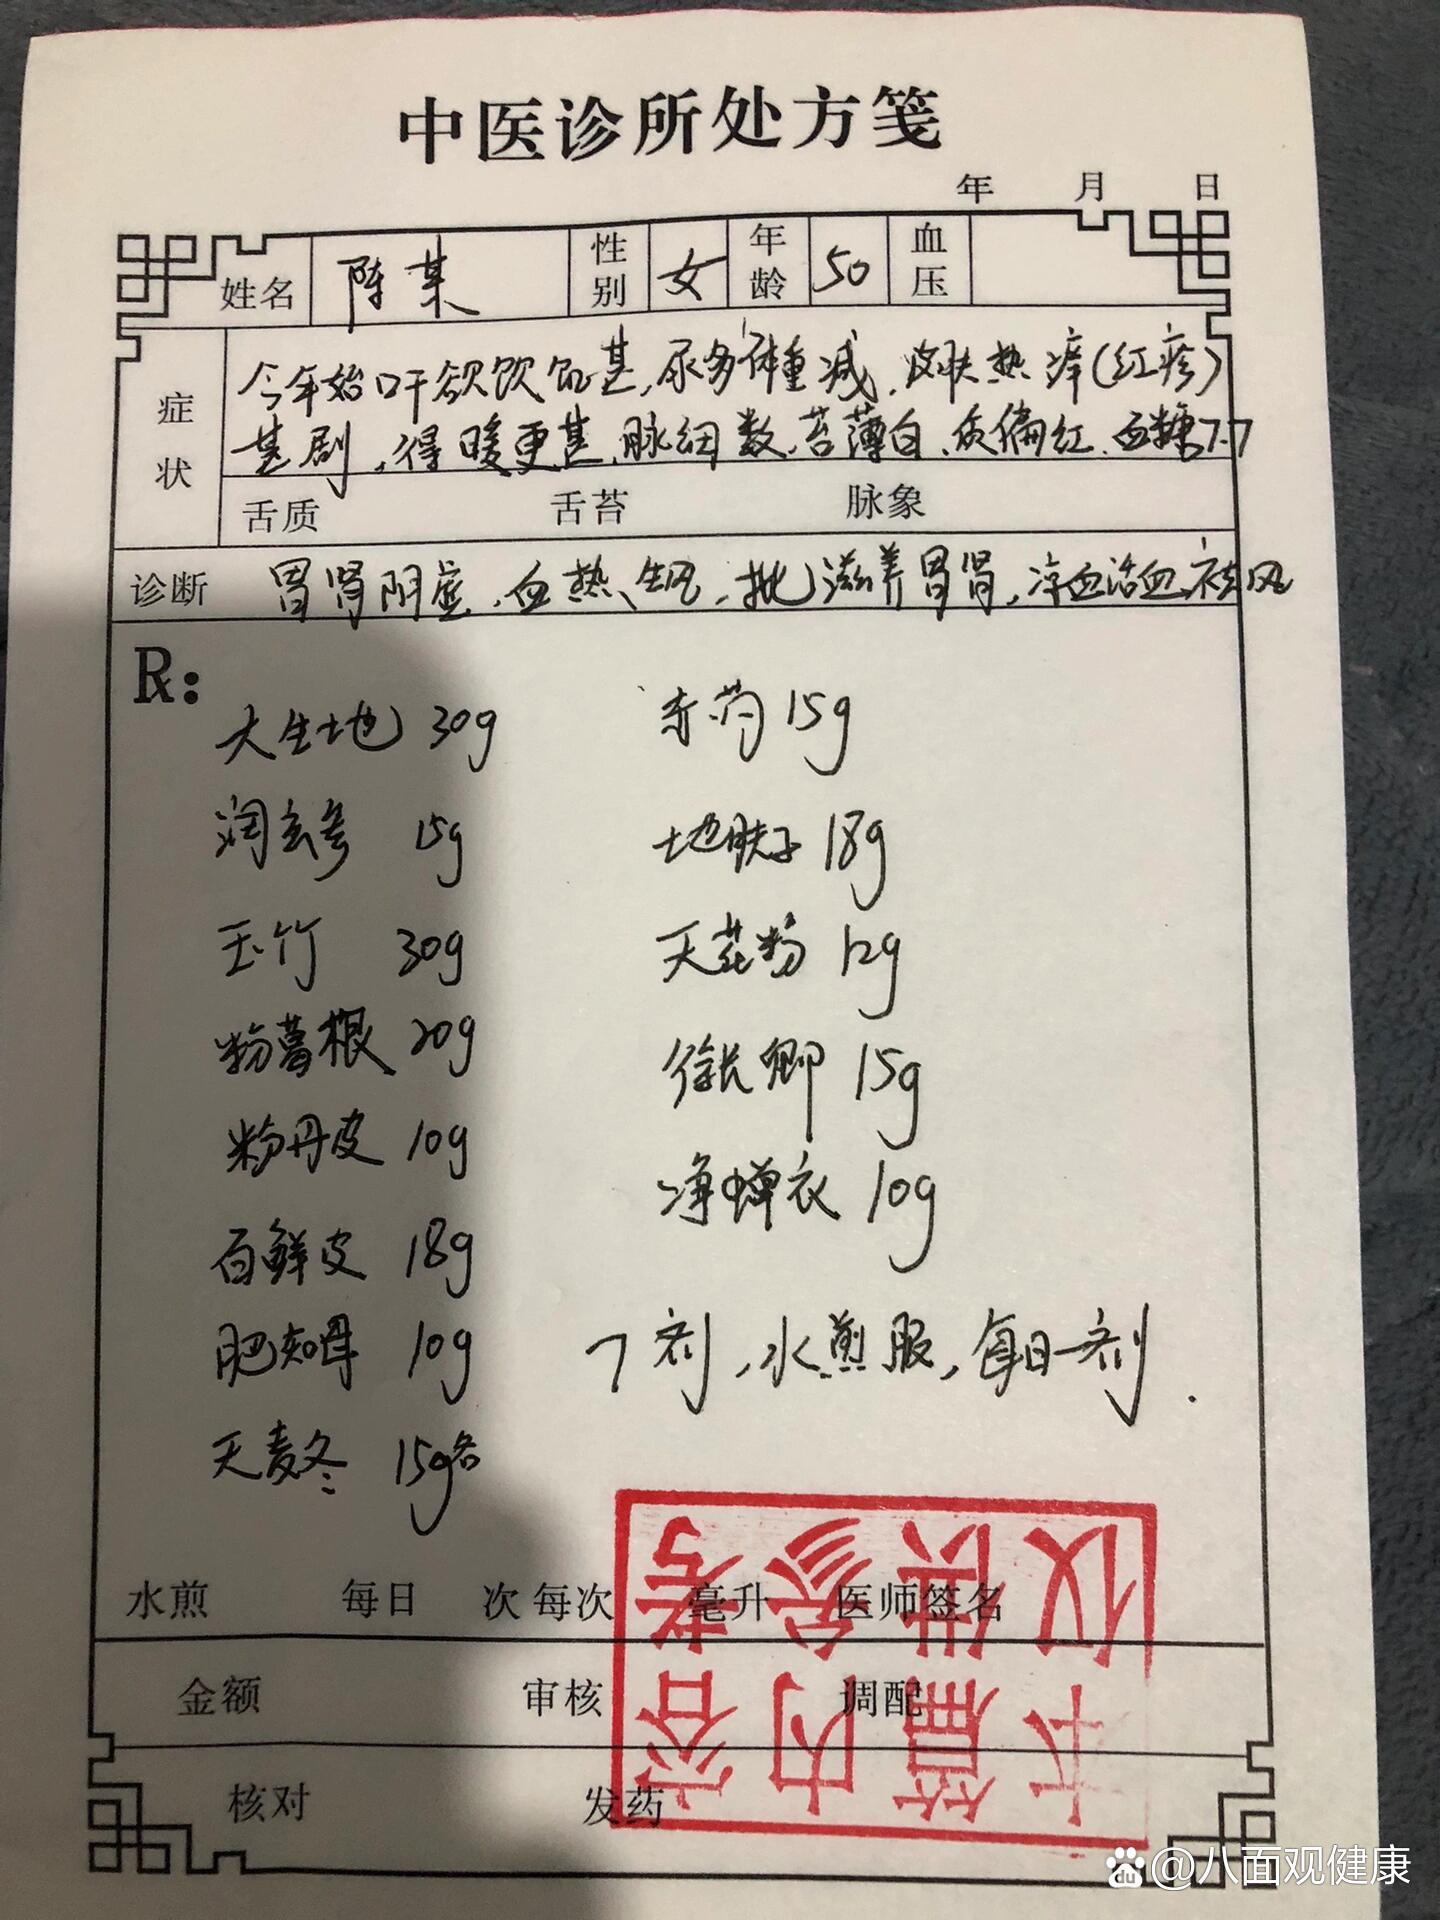 中医诊所处方笺
年 月 日
姓名 陈某 性别 女 年龄 50 血压
症状 今年始口干欲饮饥甚,尿多体重减,皮肤热痒(红疹)
甚剧,得暖更甚,脉细数,苔薄白,质偏红,血糖7.7
舌质 舌苔 脉象
诊断 胃肾阴虚,血热生风,拟滋养胃肾,凉血活血祛风
R:
大生地 30g 赤芍 15g
润玄参 15g 地肤子 18g
玉竹 30g 天花粉 12g
粉葛根 20g 徐长卿 15g
粉丹皮 10g 净蝉衣 10g
白鲜皮 18g
肥知母 10g 7剂,水煎服,每日一剂.
天麦冬 15g各
水煎 每日 次 每次 毫升 医师签名
金额 审核 调配
核对 发药
本篇内容
仅供参考
du @八面观健康